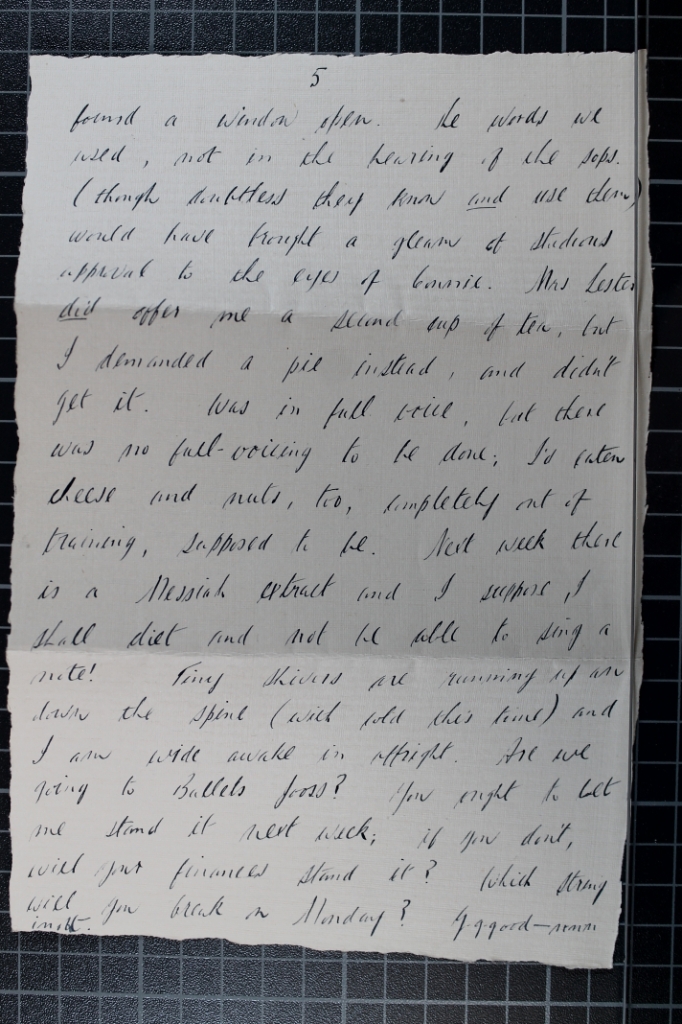 5
found a window open. The words we
used, not in the hearing of the sops.
(though doubtless they know and use them)
would have brought a gleam of studious
approval to the eyes of Connie. Mrs Lester
did offer me a second cup of tea, but
I demanded a pie instead, and didn't
get it. Was in full voice, but there
was no full-voicing to be done; I'd eaten
cheese and nuts, too, completely out of
training, supposed to be. Next week there
is a Messiah extract and I suppose, I
shall diet and not be able to sing a
note! Tiny shivers are running up an
down the spine (with cold this time) and
I am wide awake in affright. Are we
going to Ballets Jooss? You ought to let
me stand it next week; if you don't,
will your finances stand it? Which string
will you break on Monday? G-g-good—